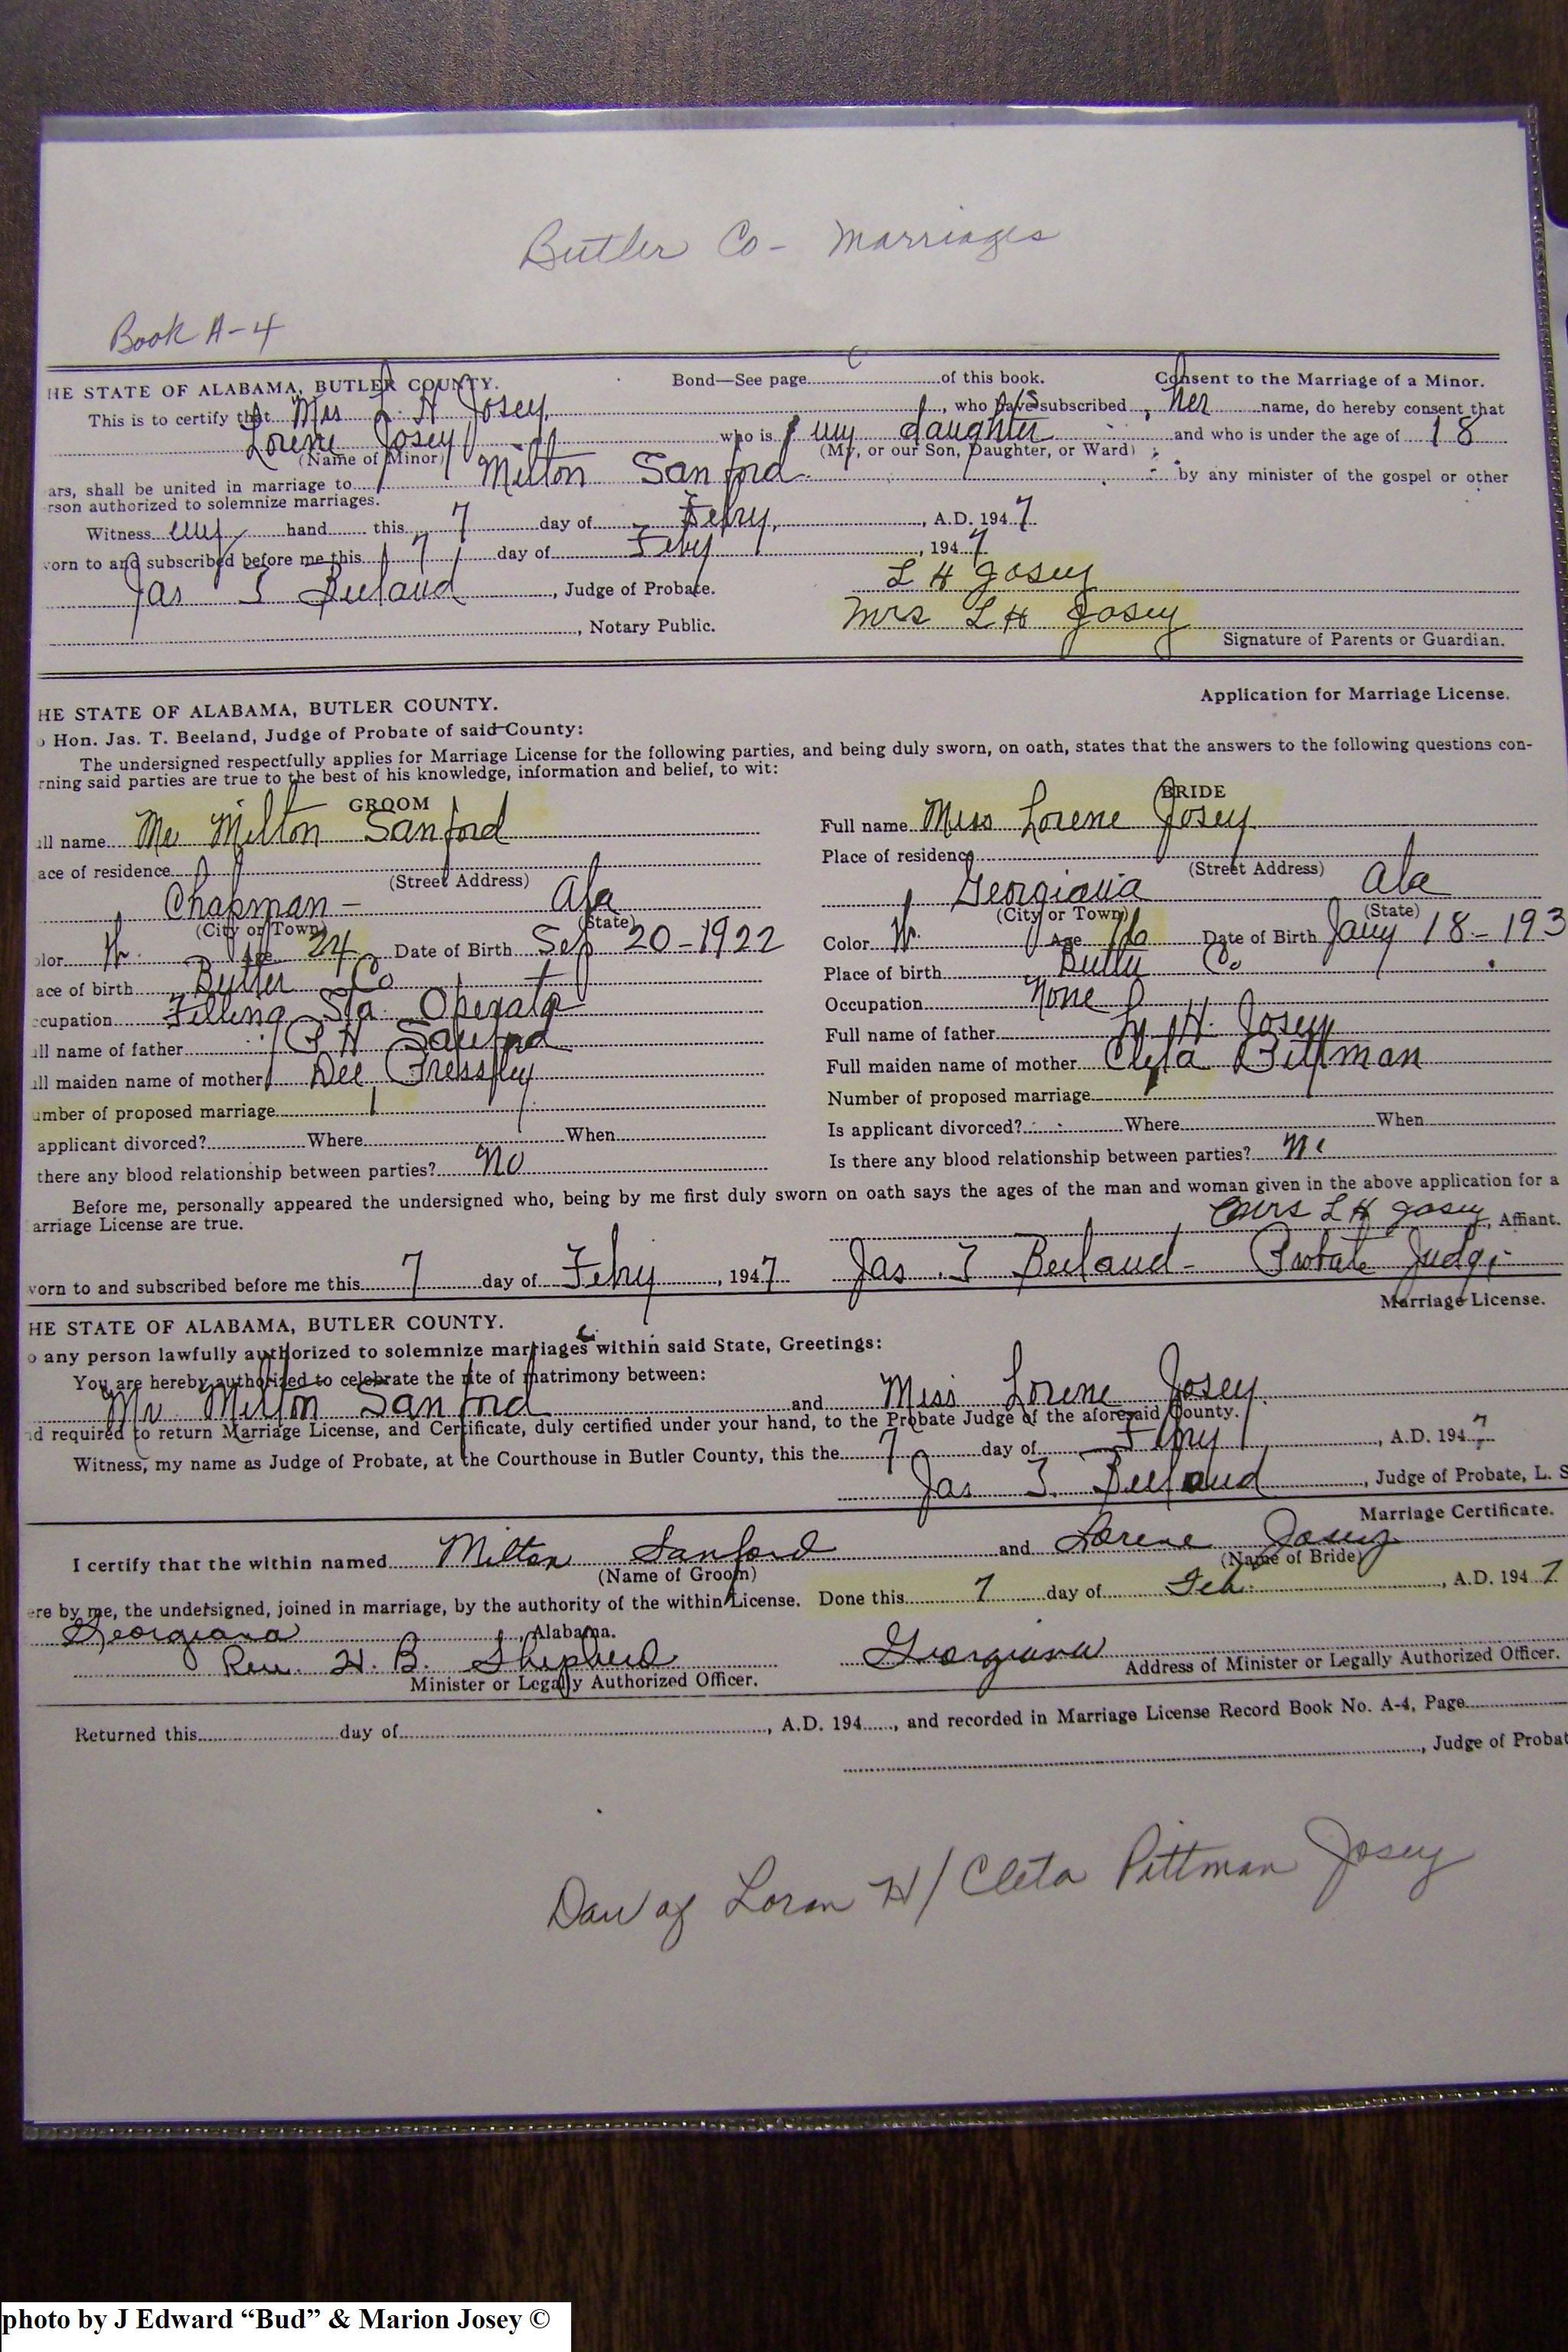 Butler Co - Marriages
Book A-4
HE STATE OF ALABAMA, BUTLER COUNTY. Bond—See page of this book. Consent to the Marriage of a Minor.
This is to certify that Mrs L. H Josey, who have subscribed, her name, do hereby consent that
Lorene Josey who is my daughter and who is under the age of 18
(Name of Minor) (My, or our Son, Daughter, or Ward)
ars, shall be united in marriage to Milton Sanford by any minister of the gospel or other
rson authorized to solemnize marriages.
Witness my hand this 7 day of Feby, A.D. 1947
orn to and subscribed before me this 7 day of Feby, 1947
L H Josey
Jas T Beeland, Judge of Probate.
Mrs L H Josey
, Notary Public.
Signature of Parents or Guardian.
HE STATE OF ALABAMA, BUTLER COUNTY. Application for Marriage License.
o Hon. Jas. T. Beeland, Judge of Probate of said County:
The undersigned respectfully applies for Marriage License for the following parties, and being duly sworn, on oath, states that the answers to the following questions con-
rning said parties are true to the best of his knowledge, information and belief, to wit:
GROOM BRIDE
ll name Mr Milton Sanford Full name Miss Lorene Josey
ace of residence Place of residence
(Street Address) (Street Address)
Chapman - Ala Georgiana Ala
(City or Town) (State) (City or Town) (State)
olor W. Age 24 Date of Birth Sep 20-1922 Color W. Age 16 Date of Birth Jany 18-193
ace of birth Butler Co Place of birth Butler Co
ccupation Filling Sta. Operator Occupation None
ll name of father P H Sanford Full name of father L. H. Josey
ll maiden name of mother Dee Pressley Full maiden name of mother Cleta Pittman
umber of proposed marriage 1 Number of proposed marriage 1
applicant divorced? Where When Is applicant divorced? Where When
there any blood relationship between parties? No Is there any blood relationship between parties? No
Before me, personally appeared the undersigned who, being by me first duly sworn on oath says the ages of the man and woman given in the above application for a
arriage License are true. Mrs L H Josey, Affiant.
orn to and subscribed before me this 7 day of Feby, 1947 Jas. T Beeland - Probate Judge
Marriage License.
HE STATE OF ALABAMA, BUTLER COUNTY.
o any person lawfully authorized to solemnize marriages within said State, Greetings:
You are hereby authorized to celebrate the rite of matrimony between:
Mr Milton Sanford and Miss Lorene Josey
d required to return Marriage License, and Certificate, duly certified under your hand, to the Probate Judge of the aforesaid County.
Witness, my name as Judge of Probate, at the Courthouse in Butler County, this the 7 day of Feby, A.D. 1947
Jas T. Beeland, Judge of Probate, L. S
Marriage Certificate.
I certify that the within named Milton Sanford and Lorene Josey
(Name of Groom) (Name of Bride)
ere by me, the undersigned, joined in marriage, by the authority of the within License. Done this 7 day of Feb., A.D. 1947
Georgiana, Alabama.
Rev. H. B. Shepherd Georgiana
Minister or Legally Authorized Officer. Address of Minister or Legally Authorized Officer.
Returned this day of, A.D. 194, and recorded in Marriage License Record Book No. A-4, Page
, Judge of Probat
Dau of Loran H/Cleta Pittman Josey
photo by J Edward “Bud” & Marion Josey ©